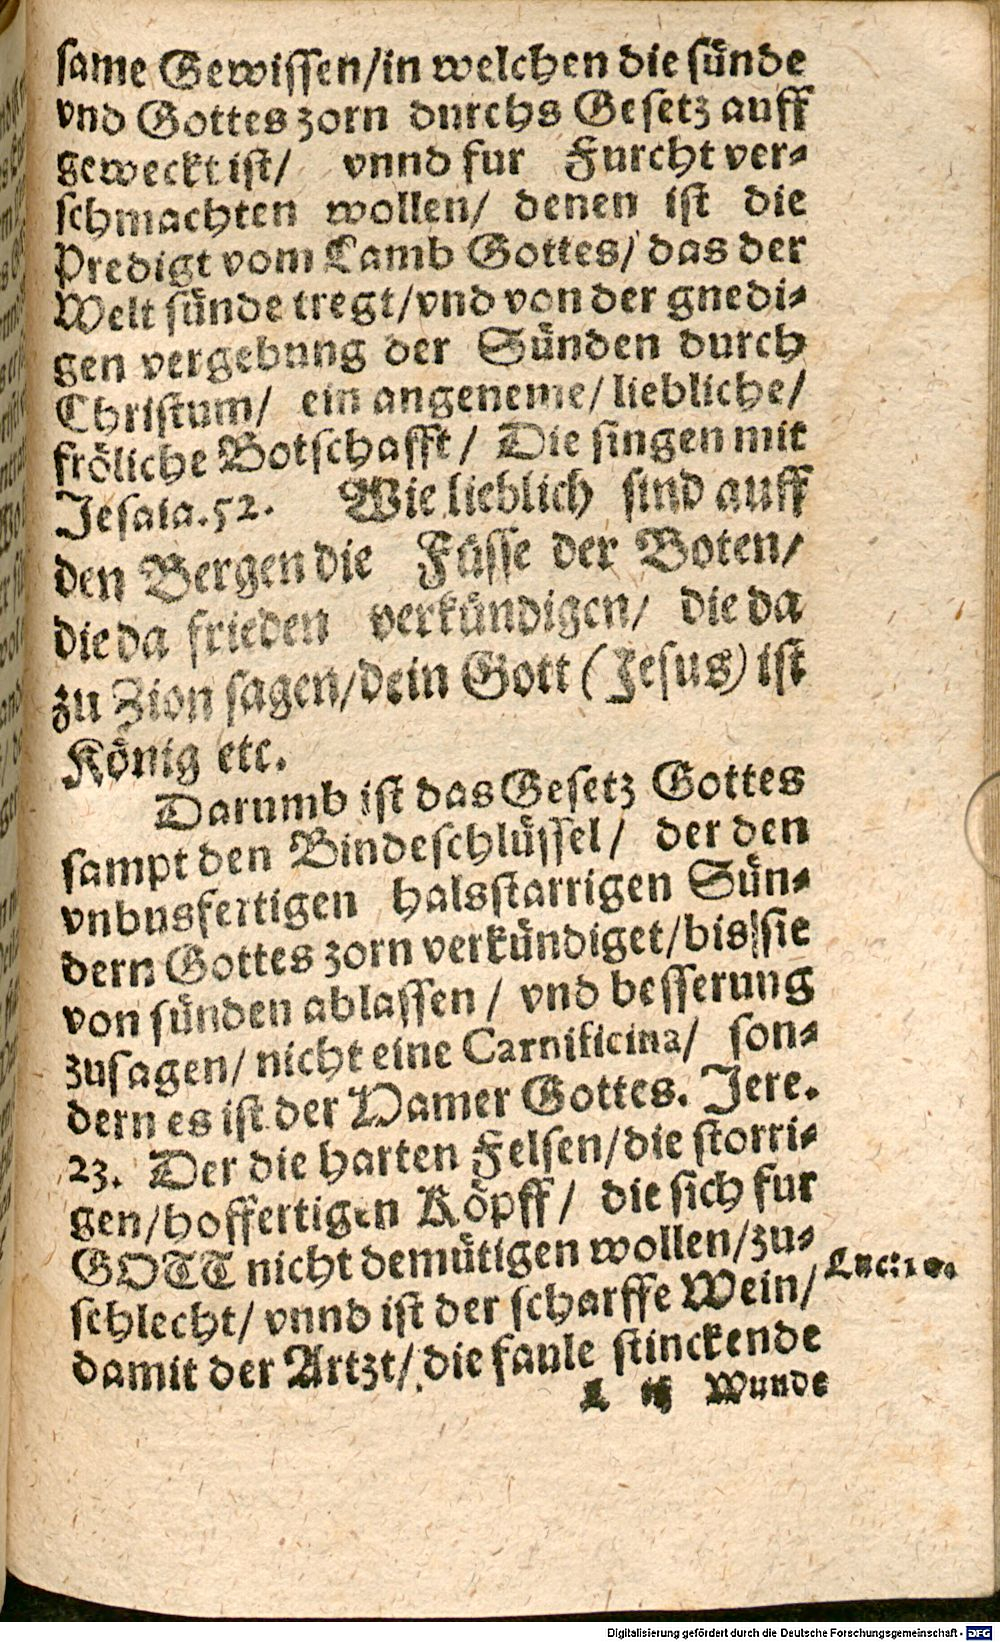 same Gewissen/in welchen die sünde
vnd Gottes zorn durchs Gesetz auff
geweckt ist/ vnnd fur Furcht ver-
schmachten wollen/ denen ist die
Predigt vom Lamb Gottes/ das der
Welt sünde tregt/vnd von der gnedi-
gen vergebung der Sünden durch
Christum/ ein angeneme/ liebliche/
fröliche Botschafft/ Die singen mit
Jesaia.52. Wie lieblich sind auff
den Bergen die Füsse der Boten/
die da frieden verkündigen/ die da
zu Zion sagen/dein Gott (Jesus) ist
König etc.
Darumb ist das Gesetz Gottes
sampt den Bindeschlüssel/ der den
vnbusfertigen halsstarrigen Sün-
dern Gottes zorn verkündiget/bis sie
von sünden ablassen/ vnd besserung
zusagen/ nicht eine Carnificina/ son-
dern es ist der Hamer Gottes. Jere.
23. Der die harten Felsen/die storri-
gen/hoffertigen Köpff/ die sich fur
GOTT nicht demütigen wollen/zu-
schlecht/ vnnd ist der scharffe Wein/
Luc:10.
damit der Artzt/ die faule stinckende
L iij Wunde
Digitalisierung gefördert durch die Deutsche Forschungsgemeinschaft - DFG